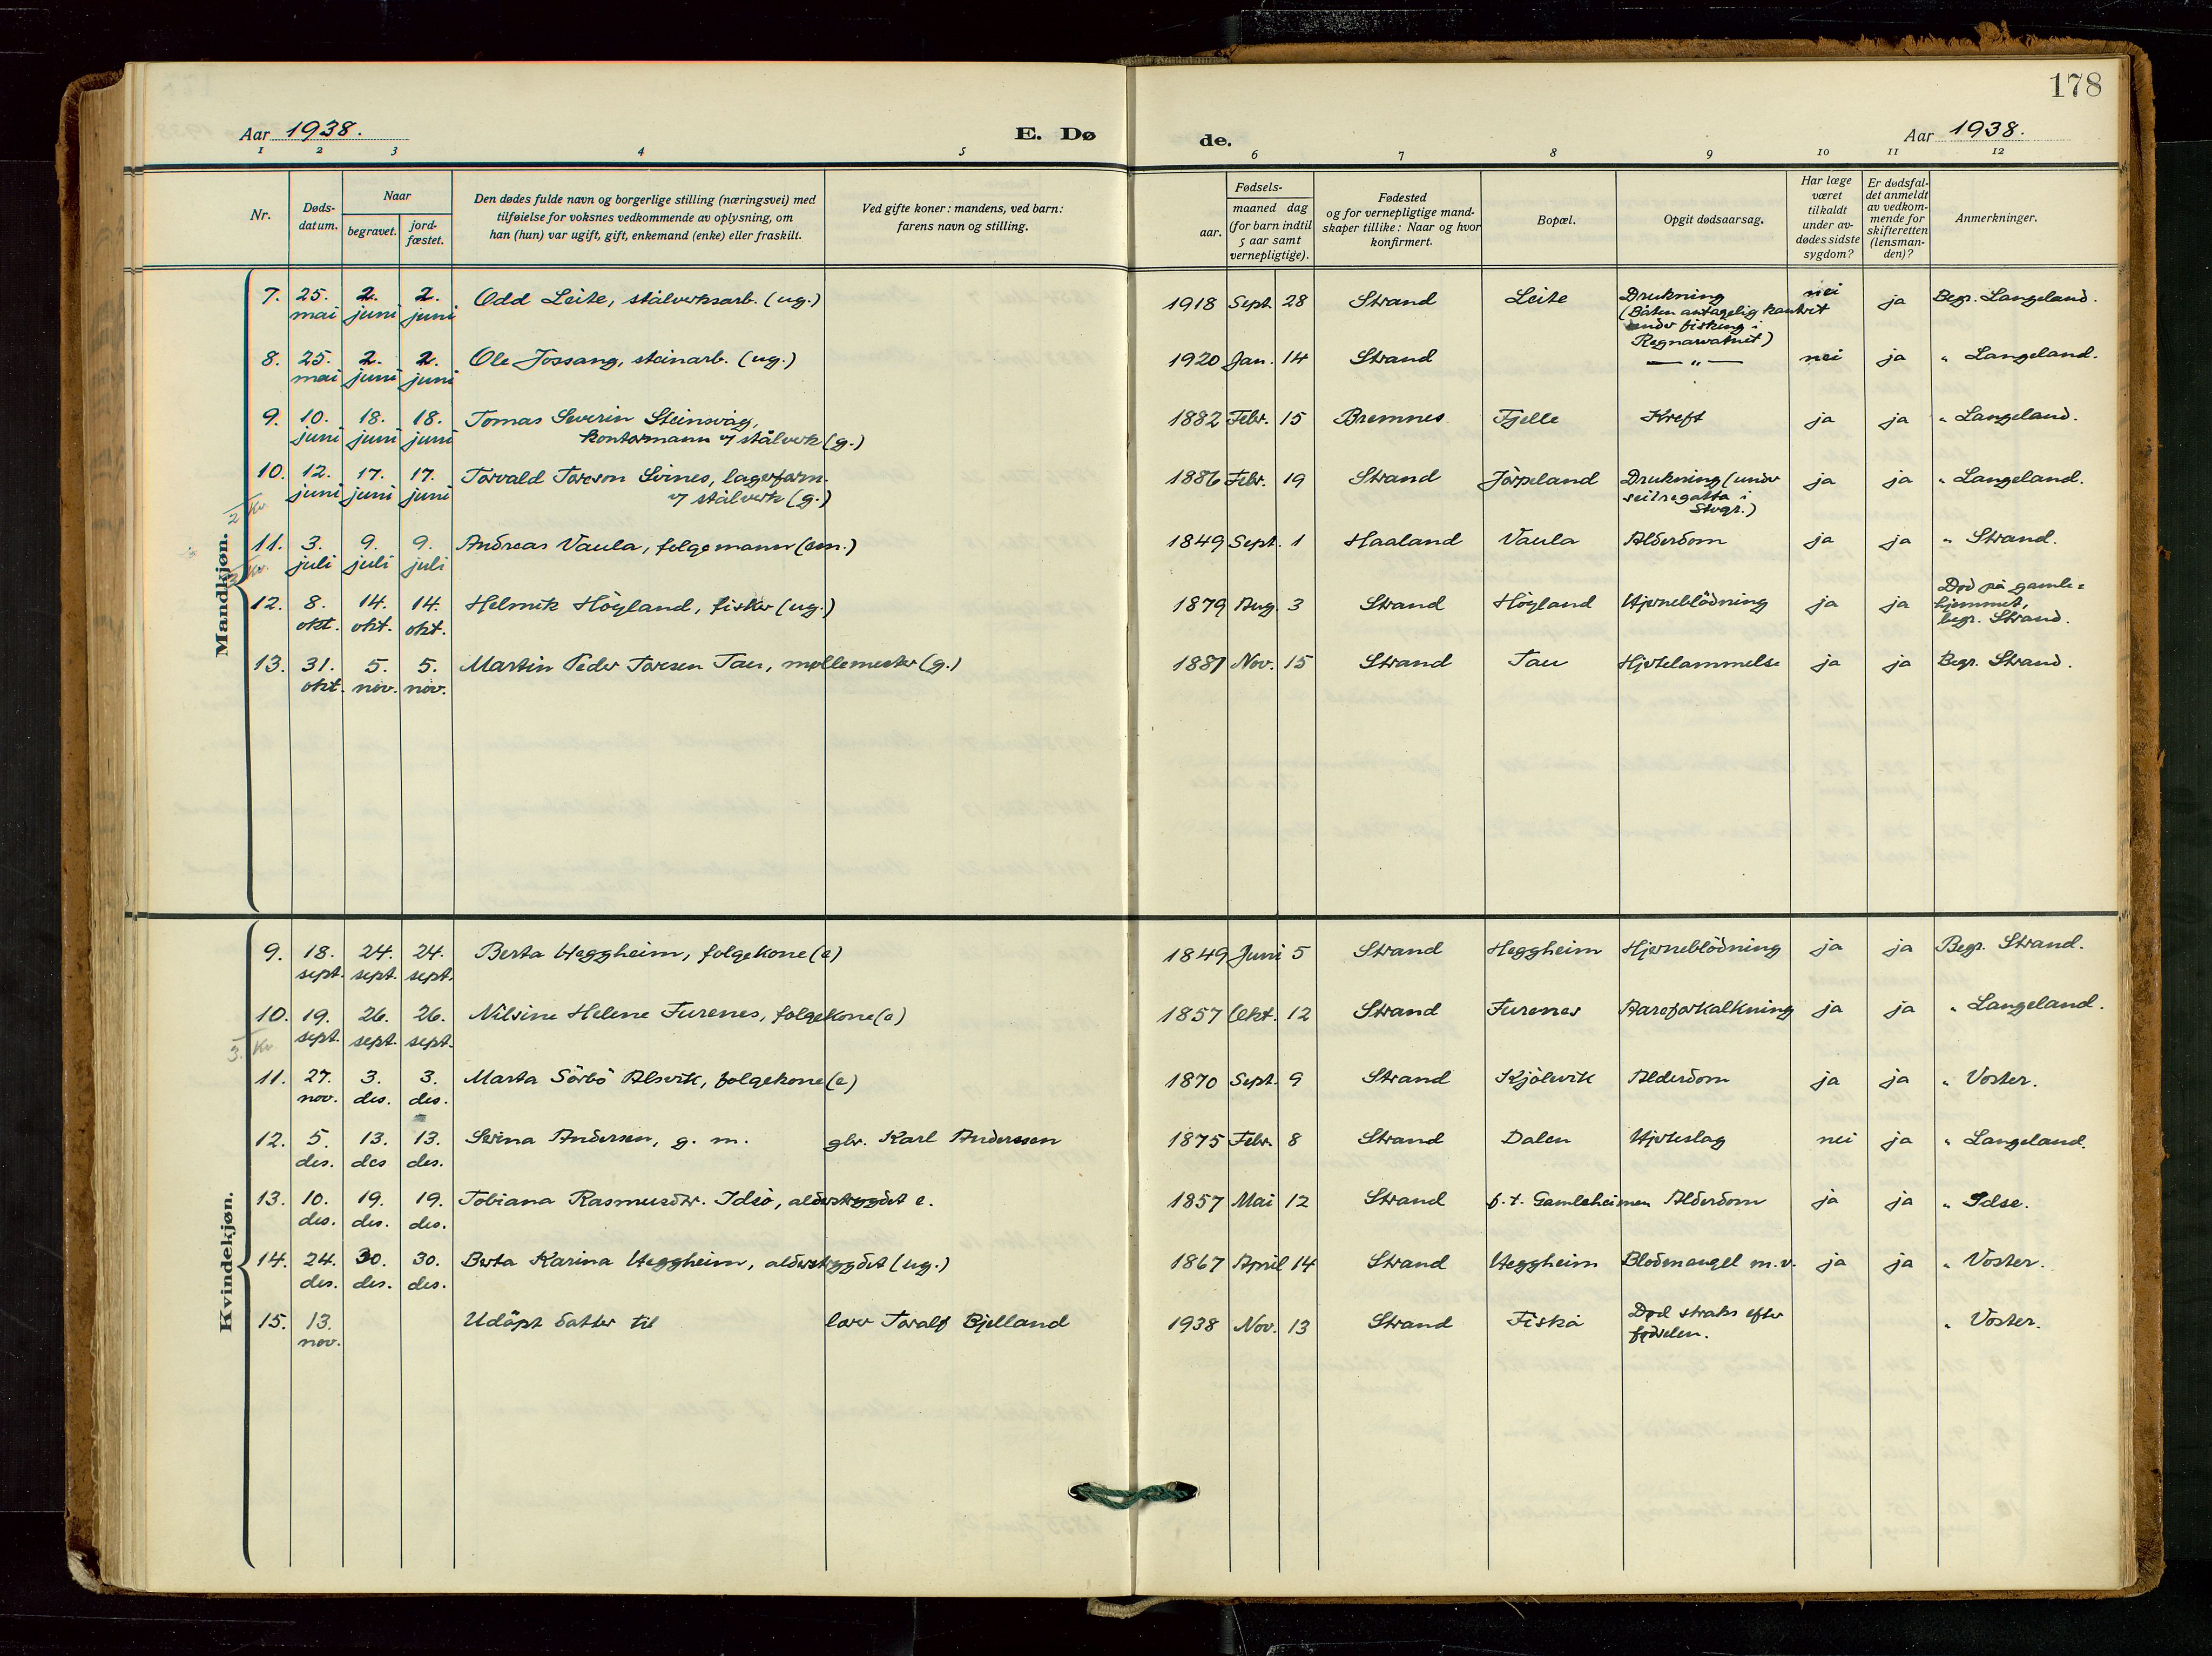 178
Aar 1938.
E. Dø
de.
Aar 1938.
1 2 3 4 5 6 7 8 9 10 11 12
Nr.
Døds-
datum.
Naar
begravet.
jord-
fæstet.
Den dødes fulde navn og borgerlige stilling (næringsvei) med
tilføielse for voksnes vedkommende av oplysning, om
han (hun) var ugift, gift, enkemand (enke) eller fraskilt.
Ved gifte koner: mandens, ved barn:
farens navn og stilling.
Fødsels-
aar.
maaned dag
(for barn indtil
5 aar samt
vernepligtige).
Fødested
og for vernepligtige mand-
skaper tillike: Naar og hvor
konfirmert.
Bopæl.
Opgit dødsaarsag.
Har læge
været
tilkaldt
under av-
dødes sidste
sygdom?
Er dødsfal-
det anmeldt
av vedkom-
mende for
skifteretten
(lensman-
den)?
Anmerkninger.
Mandkjøn.
7. 25. 2. 2. Odd Leite, stålverksarb. (ug.) 1918 Sept. 28 Strand Leite Drukning nei ja Begr. Langeland.
mai juni juni (Båten antagelig kantret
under fisking i
Regnarvatnet)
8. 25. 2. 2. Ole Jossang, steinarb. (ug.) 1920 Jan. 14 Strand — " — nei ja " Langeland.
mai juni juni
9. 10. 18. 18. Tomas Severin Steinsvåg, 1882 Febr. 15 Bremnes Fjelle Kreft ja ja " Langeland.
juni juni juni kontormann v/ stålverk (g.)
10. 12. 17. 17. Torvald Toreson Svines, lagerform. 1886 Febr. 19 Strand Jörpeland Drukning (under ja ja " Langeland.
juni juni juni v/ stålverk (g.) seilregatta i
Stvgr.)
2 Kv.
11. 3. 9. 9. Andreas Vaula, folgemann (em.) 1849 Sept. 1 Haaland Vaula Alderdom ja ja " Strand.
juli juli juli
3 Kv.
12. 8. 14. 14. Helmik Högland, fisker (ug.) 1879 Aug. 3 Strand Högland Hjerneblödning ja ja Død på gamle=
okt. okt. okt. hjemmet,
begr. Strand.
13. 31. 5. 5. Martin Peder Toresen Tau, møllemester (g.) 1881 Nov. 15 Strand Tau Hjertelammelse ja ja Begr. Strand.
okt. nov. nov.
Kvindekjøn.
9. 18. 24. 24. Berta Heggheim, folgekone (e) 1849 Juni 5 Strand Heggheim Hjerneblödning ja ja Begr. Strand.
sept. sept. sept.
10. 19. 26. 26. Nilsine Helene Furenes, folgekone (e) 1857 Okt. 12 Strand Furenes Aareforkalkning ja ja " Langeland.
sept. sept. sept.
3. Kv.
11. 27. 3. 3. Marta Sörbö Alsvik, folgekone (e) 1870 Sept. 9 Strand Kjölevik Alderdom ja ja " Voster.
nov. des. des.
12. 5. 13. 13. Serina Andersen, g. m. gbr. Karl Anderssen 1875 Febr. 8 Strand Dalen Hjerteslag nei ja " Langeland.
des. des des.
13. 10. 19. 19. Tobiana Rasmusdtr. Idsö, alderstrygdet e. 1857 Mai 12 Strand p.t. Gamleheimen Alderdom ja ja " Idse.
des. des. des.
14. 24. 30. 30. Berta Karina Heggheim, alderstrygdet (ug.) 1867 April 14 Strand Heggheim Blodmangel m.v. ja ja " Voster.
des. des. des.
15. 13. Udöpt datter til Toralf Bjelland 1938 Nov. 13 Strand Fiskå Død straks efter " Voster.
nov. fødselen.